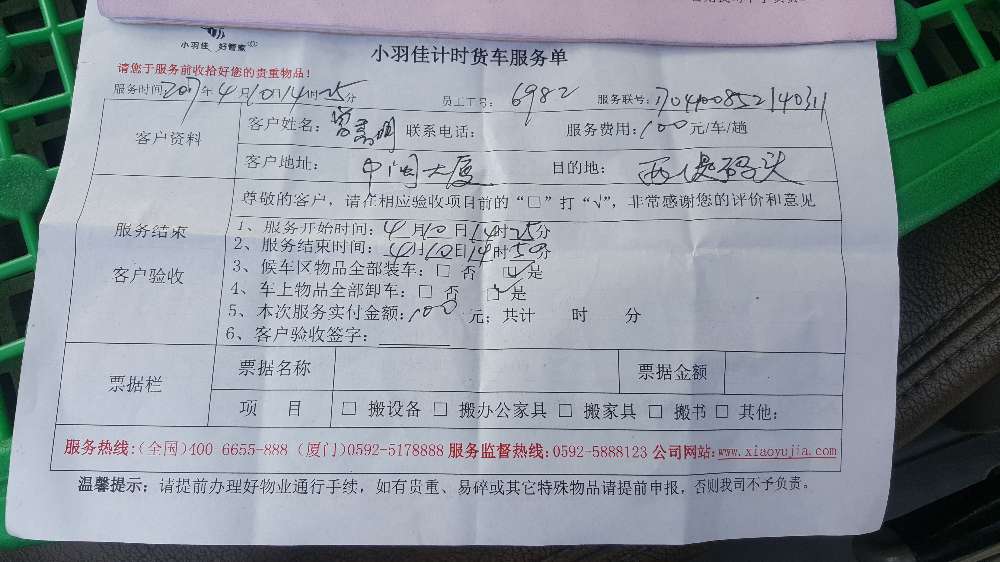 小羽佳 好管家
小羽佳计时货车服务单
请您于服务前收拾好您的贵重物品!
服务时间2017年4月10日14时25分 员工工号: 6982 服务联号:
客户资料
客户姓名: 联系电话: 服务费用:100元/车/趟
客户地址: 中闽大厦 目的地: 码头
服务结束
客户验收
尊敬的客户,请在相应验收项目前的“□”打“√”,非常感谢您的评价和意见
1、服务开始时间:4月10日14时25分
2、服务结束时间:4月10日14时50分
3、候车区物品全部装车:□ 否 ☑ 是
4、车上物品全部卸车:□ 否 ☑ 是
5、本次服务实付金额:100 元;共计 时 分
6、客户验收签字:
票据栏
票据名称 票据金额
项 目 □ 搬设备 □ 搬办公家具 □ 搬家具 □ 搬书 □ 其他:
服务热线:(全国)400 6655-888 (厦门)0592-5178888 服务监督热线:0592-5888123 公司网站:www.xiaoyujia.com
温馨提示:请提前办理好物业通行手续,如有贵重、易碎或其它特殊物品请提前申报,否则我司不予负责。